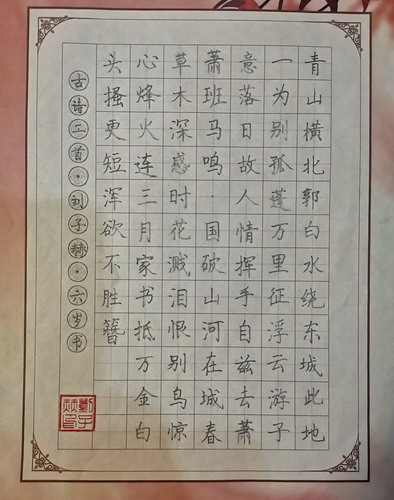 青山横北郭白水绕东城此地
一为别孤蓬万里征浮云游子
意落日故人情挥手自兹去萧
萧班马鸣·国破山河在城春
草木深感时花溅泪恨别鸟惊
心烽火连三月家书抵万金白
头搔更短浑欲不胜簪
古诗二首·刘子赫·六岁书